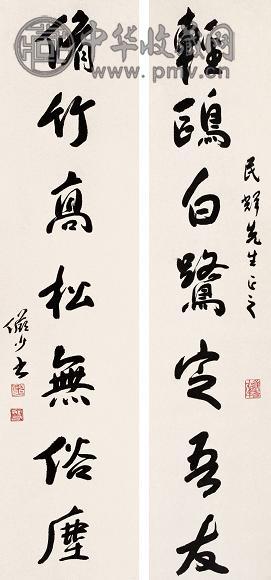 中华收藏网
www.pmv.cn
民輝先生正之
輕鷗白鷺定吾友
脩竹高松無俗塵
儼少書